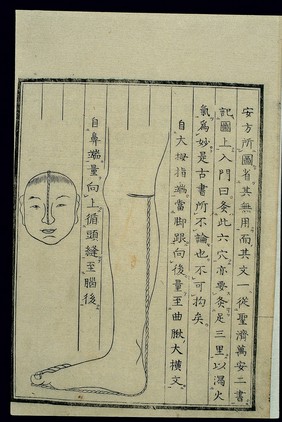 安方所圖者其無用而其文一從聖濟萬安二書
記圖上入門曰灸此六穴亦要灸足三里以瀉火
氣為妙是古書所不論也不可拘矣
自大拇指端當脚跟向後量至曲䐐大橫文
自鼻端量向上循頭縫至腦後